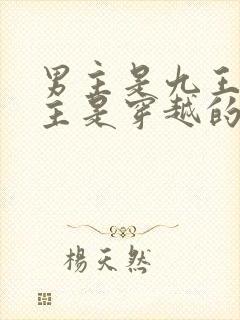 男主是九王
主是穿越的
楊天然